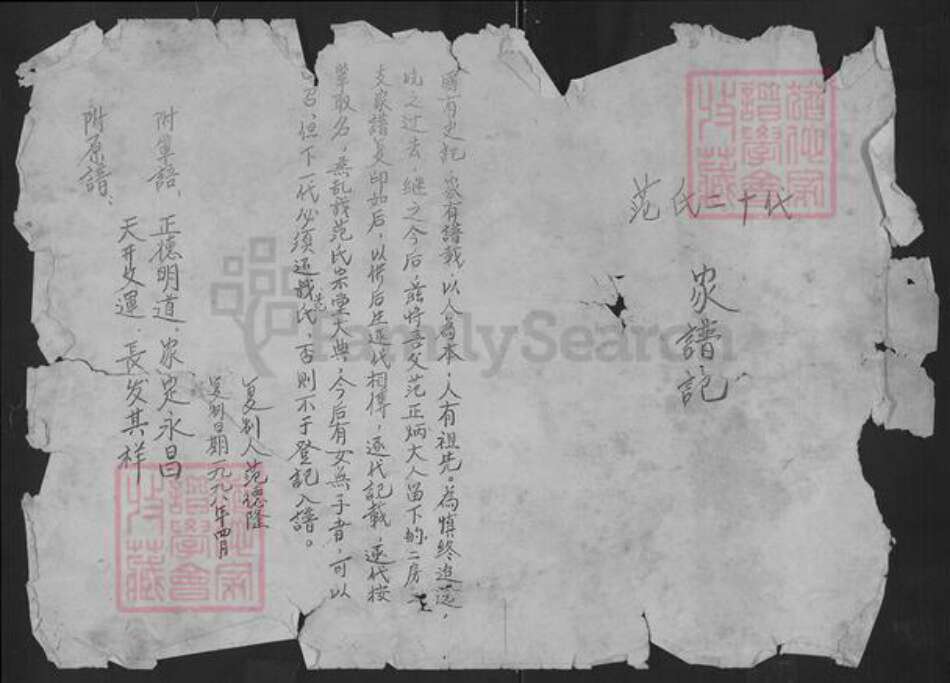 范氏二十代
家譜記
國有史記，家有譜載，以人為本，人有祖先。為慎終追远，
此之过去，继之今后，兹将吾父范正炳大人留下的二房一
支家譜复印如后，以供后生逐代相傳，逐代記載，逐代按
輩取名，無乱我范氏宗堂大典，今后有女無子者，可以
召，但下一代必须还我范氏，否则不于登記入譜。
复制人范德隆
复制日期一九九八年四月
附輩語、正德明道，家定永昌
天开文運，長发其祥
附原譜、
譜學會
收藏
譜學會
收藏
FamilySearch